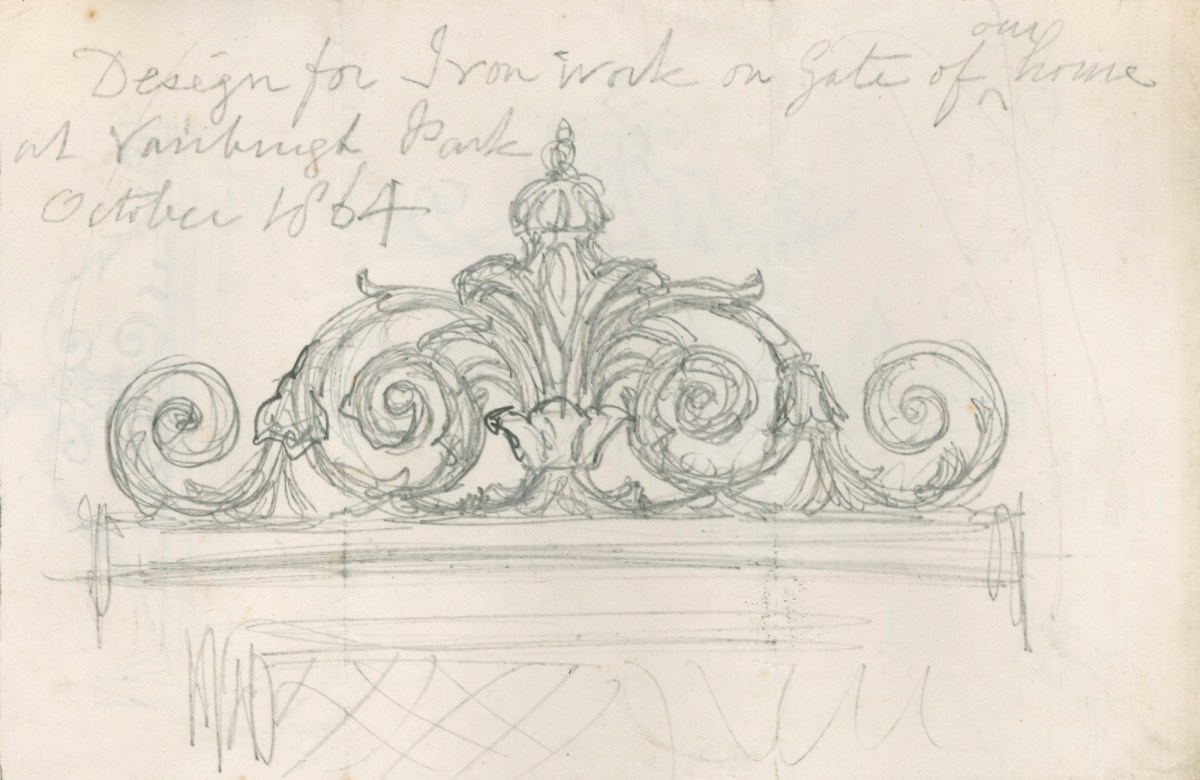 Design for Iron work on Gate of our home
at Vanbrugh Park
October 1864